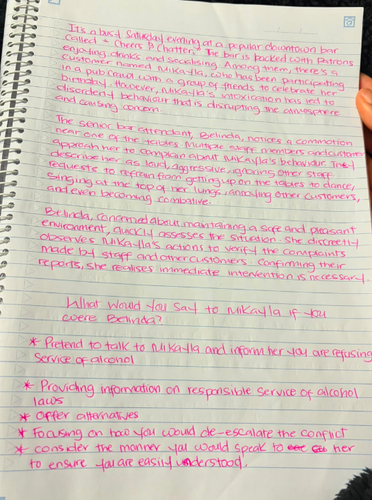 It's a busy Saturday evening at a popular downtown bar
called "Cheers & Chatter." The bar is packed with Patrons
enjoying drinks and socialising. Among them, there's a
customer named Mikayla, who has been participating
in a pub crawl with a group of friends to celebrate her
birthday. However, Mikayla's intoxication has led to
disorderly behaviour that is disrupting the atmosphere
and causing concern
The senior bar attendant, Belinda, notices a commotion
near one of the tables. Multiple staff members and customers
approach her to complain about Mikayla's behaviour. They
describe her as loud, aggressive, ignoring other staff
requests to refrain from getting up on the tables to dance,
singing at the top of her lungs, annoying other customers,
and even becoming combative.
Belinda, concerned about maintaining a safe and pleasant
environment, quickly assesses the situation. She discreetly
observes Mikayla's actions to verify the complaints
made by staff and other customers. Confirming their
reports, she realises immediate intervention is necessary.
What would you say to Mikayla if you
were Belinda?
* Pretend to talk to Mikayla and inform her you are refusing
service of alcohol
* Providing information on responsible service of alcohol
laws
* Offer alternatives
* Focusing on how you would de-escalate the conflict
* consider the manner you would speak to her
to ensure you are easily understood.